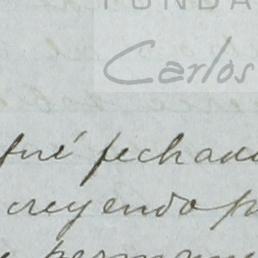 FUNDA
Carlos
fué fechad
creyendo p